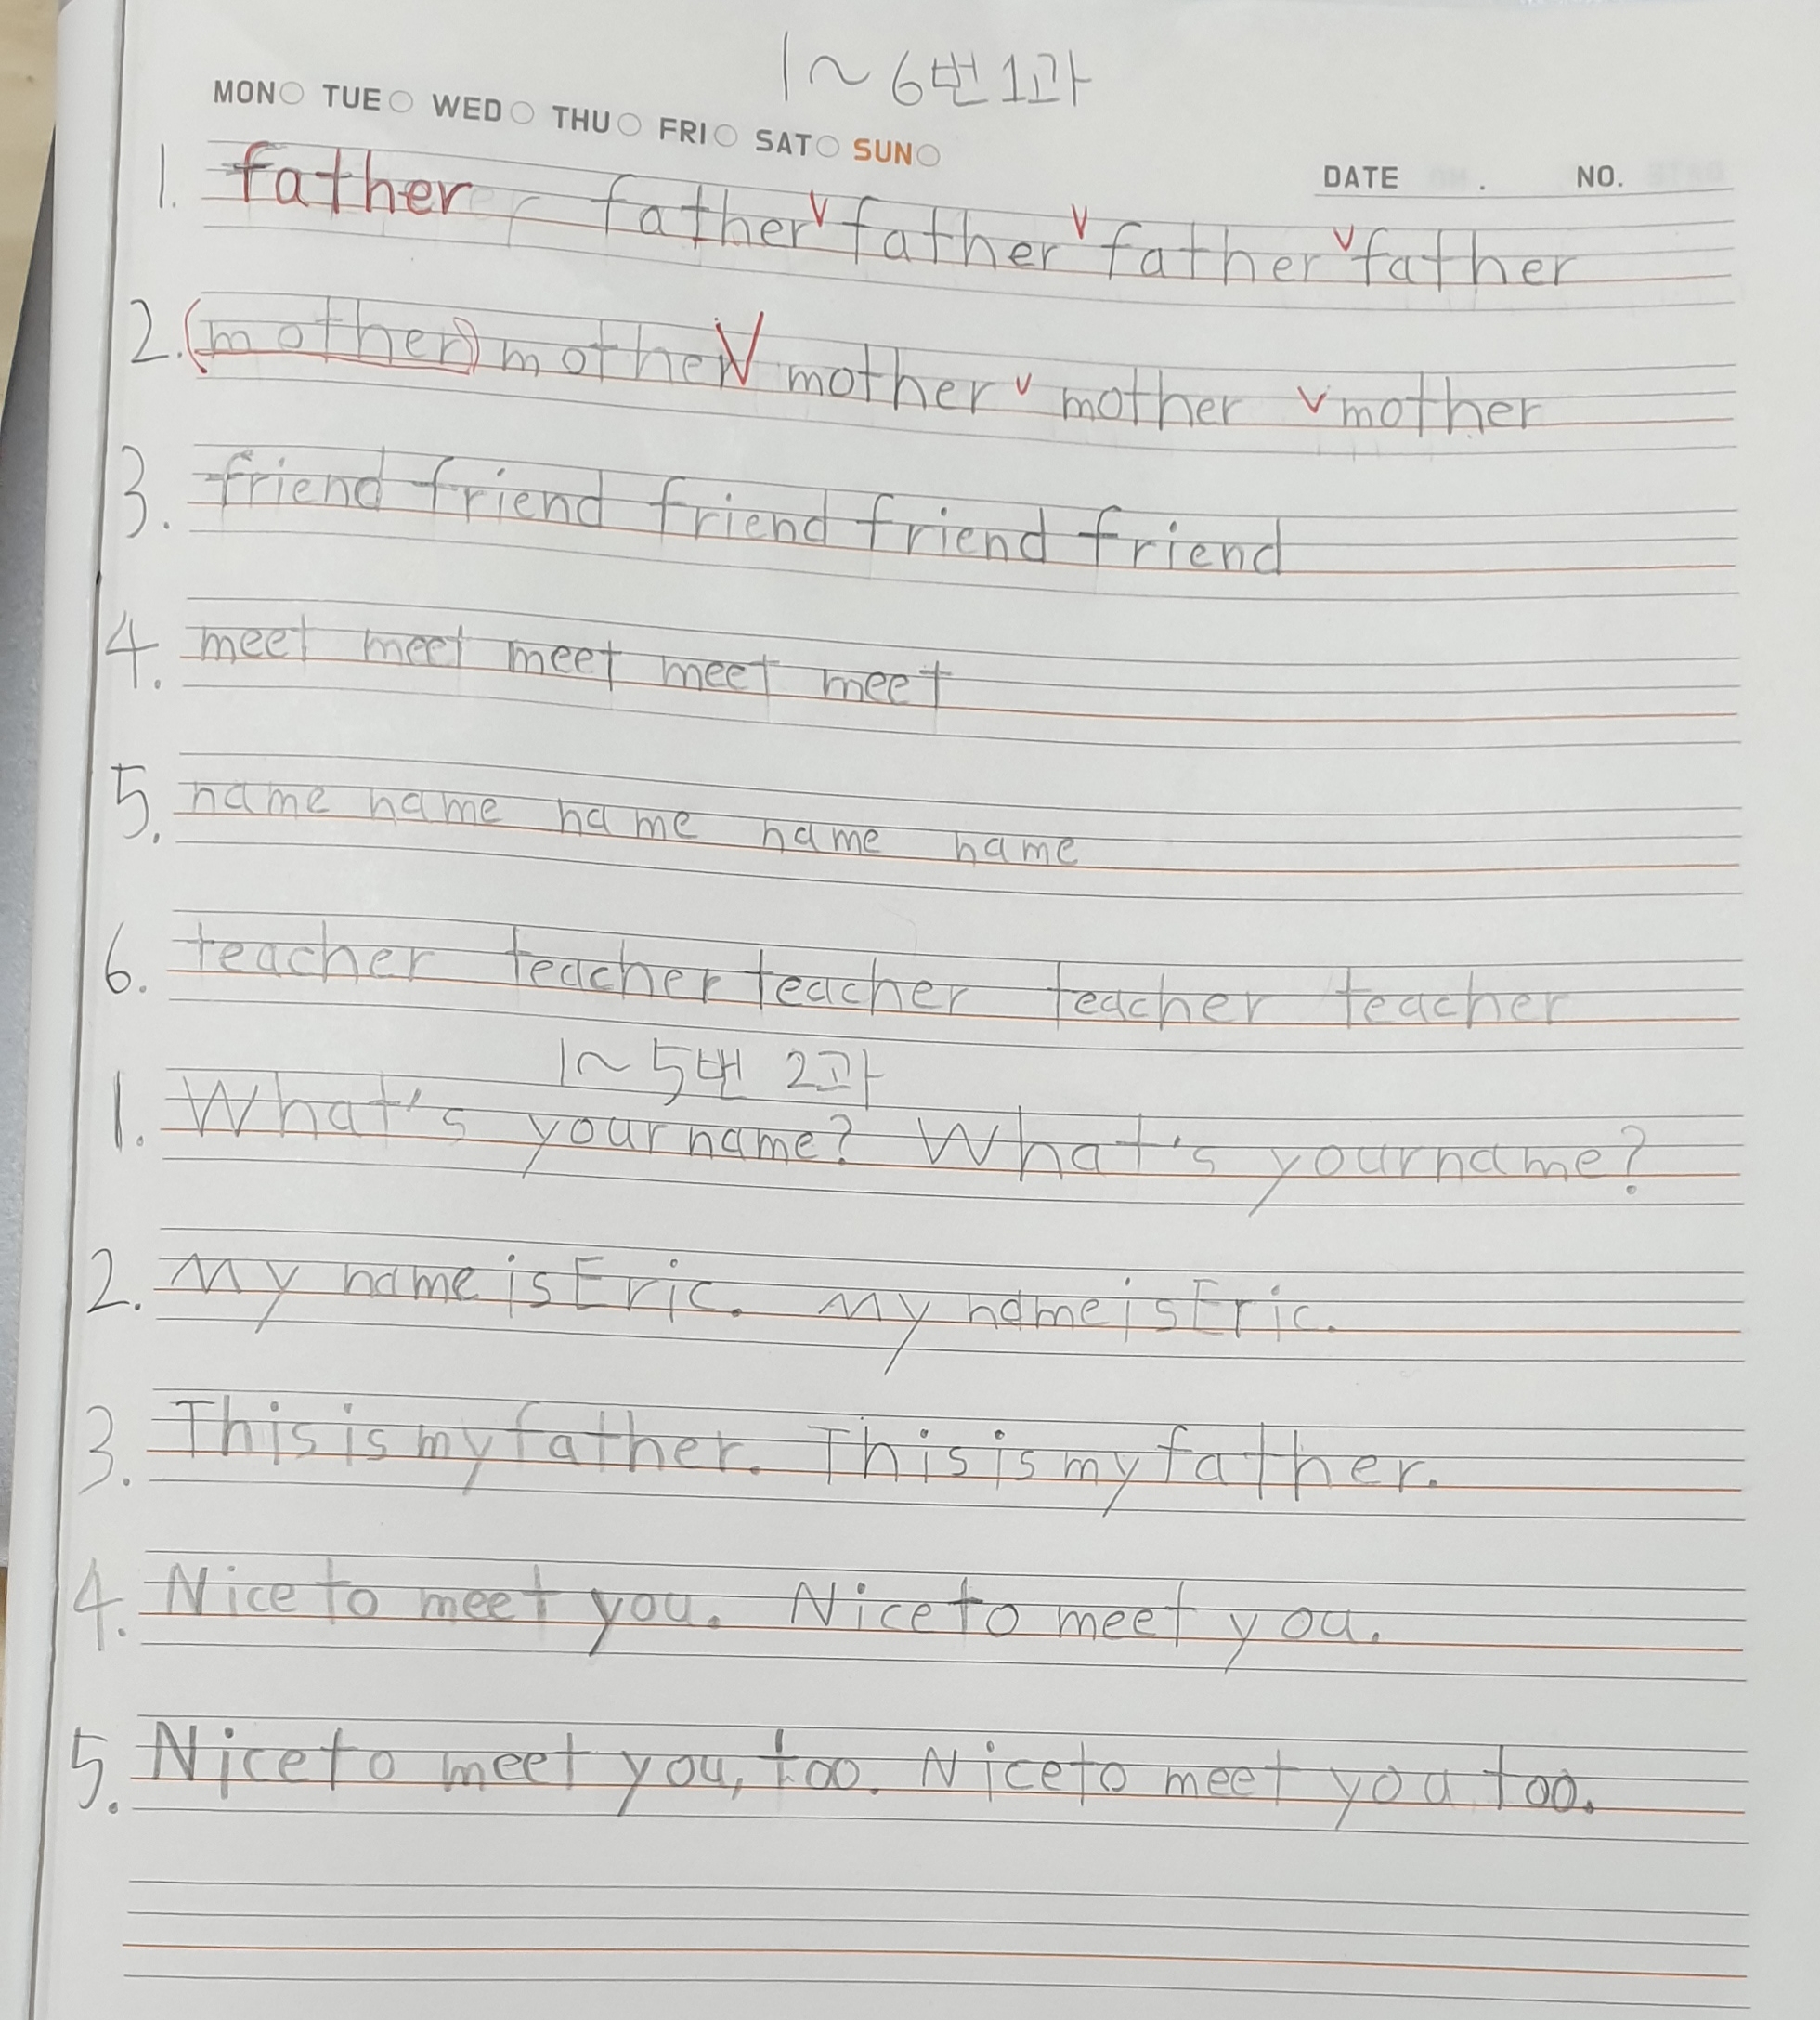 1~6번 1과
MON TUE WED THU FRI SAT SUN
DATE . NO.
1. father father father father father
2. (mother) mother mother mother mother
3. friend friend friend friend friend
4. meet meet meet meet meet
5. name name name name name
6. teacher teacher teacher teacher teacher
1~5번 2과
1. What's your name? What's your name?
2. My name is Eric. My name is Eric.
3. This is my father. This is my father.
4. Nice to meet you. Nice to meet you.
5. Nice to meet you, too. Nice to meet you too.